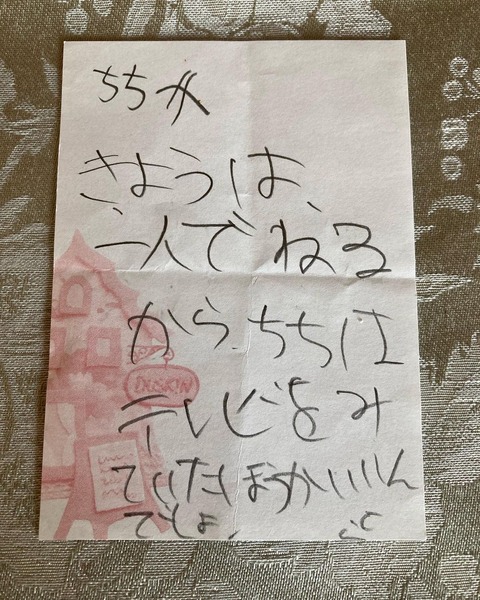 ちちが
きようは、
一人でねる
から、ちちは
テレビをみ
ていたほうかいいん
でしょ、
DUSKIN